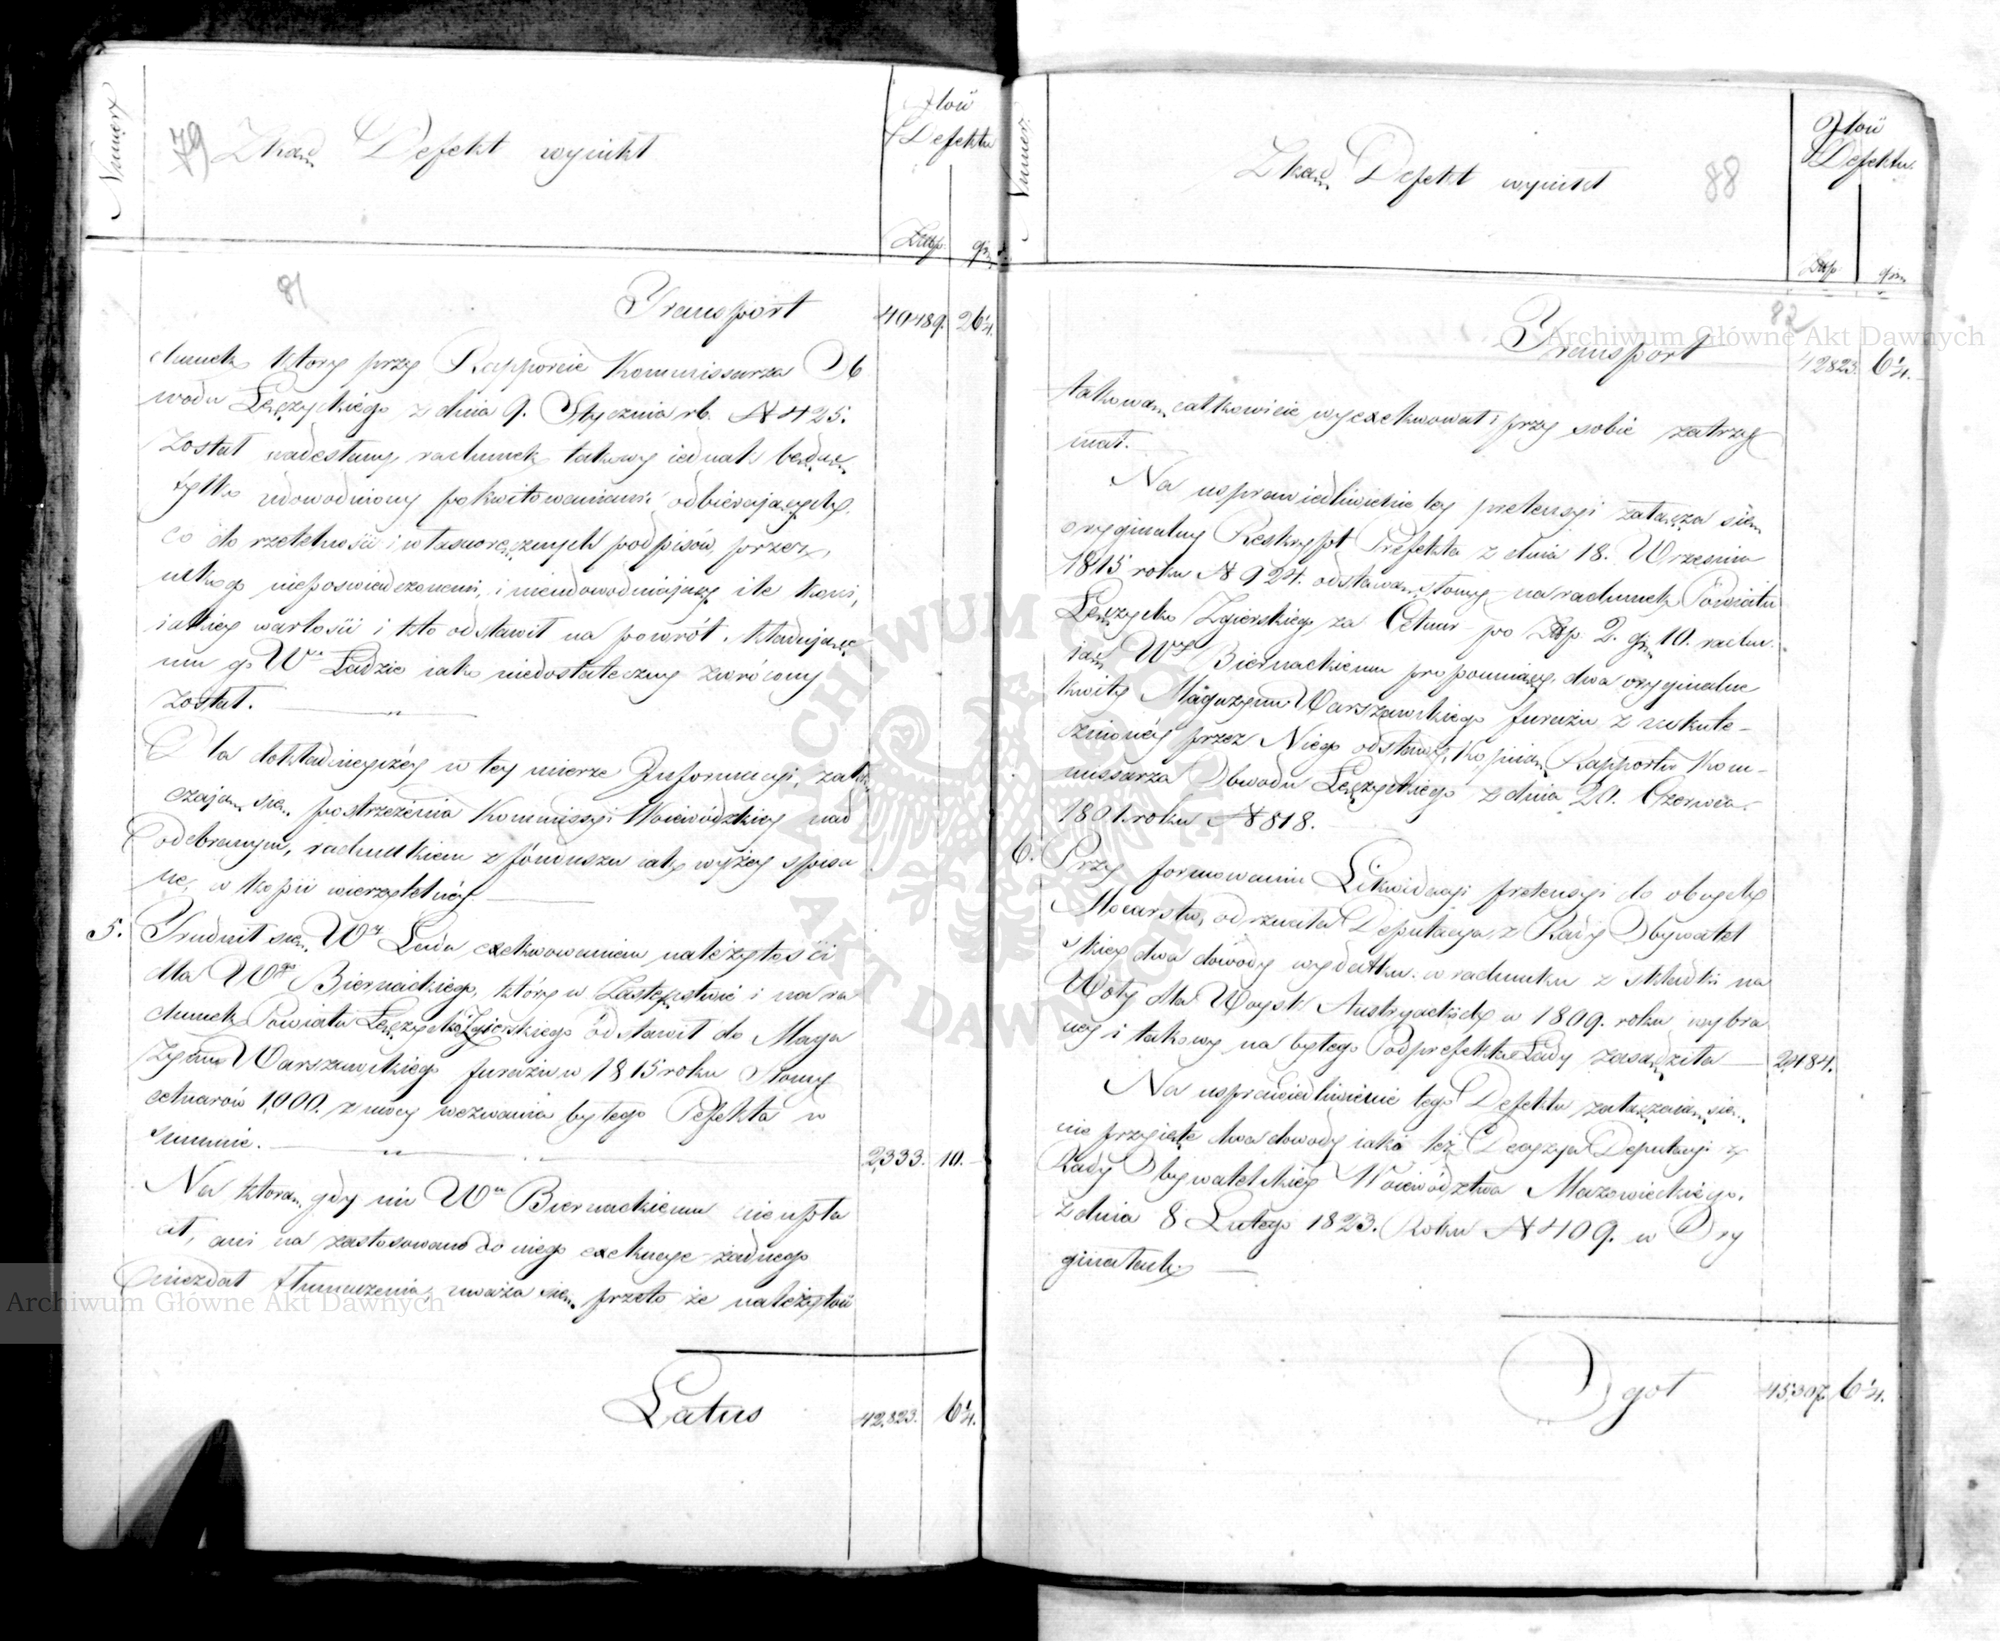 Numery
79 Zkąd Defekt wynikł
Ilość
Defektu
Złtp. gr.
81
Transport 40489. 26¼.
chunek który przy Rapporcie Kommissarza Ob
wodu Łęczyckiego z dnia 9. Stycznia rb. N 425.
został nadesłany, rachunek takowy iednak będąc
tylko udowodniony pokwitowaniami odbierających
co do rzetelności i własnoręcznych podpisów, przez
nikogo niepoświadczonemi, i nieudowodniaiący ile koni,
iakiey wartości i kto odstawił na powrót składaiące
mu go Wu Ładzie iako niedostateczny zwrócony
został.
Dla dokładnieyszéy w tey mierze Informacyi, załą
czaią się postrzeżenia Kommissyi Woiewódzkiey nad
odebranym, rachunkiem z funduszu iak wyżey spisa
ne, w kopii wierzytelnéy
5. Trudnił się Wy Łada exekwowaniem należytości
dla Wgo Biernackiego, który w Zastępstwie i na ra
chunek Powiatu Łęczycko Zgierskiego odstawił do Maga
zynu Warszawskiego furażu w 1815 roku Słomy
cetnarów 1,000. z mocy wezwania byłego Prefekta w
summie. 2,333. 10.
Na którą gdy mu Wu Biernackiemu nieupła
cił, ani na zastosowaną do niego exekucye żadnego
niezdał tłumaczenia, uważa się przeto że należytość
Latus 42,823. 6¼.
Numer.
Zkąd Defekt wynikł 88
Ilość
Defektu.
Złtp gr.
82
Transport 42823. 6¼.
takową całkowicie wyexekwował i przy sobie zatrzy
mał.
Na usprawiedliwienie tey pretensyi załącza się
oryginalny Reskrypt Prefekta z dnia 18. Września
1815 roku N 924. odstawę słomy na rachunek Powiatu
Łęczycko Zgierskiego za Cetnar po Złtp. 2. gr. 10. rachu
iąc Wmu Biernackiemu proponuiący, dwa oryginalne
kwity Magazynu Warszawskiego furażu z uskute-
cznionéy przez Niego odstawy, kopią Rapportu Kom-
missarza Obwodu Łęczyckiego z dnia 20. Czerwca
1801. roku N 818.
6. Przy formowaniu Likwidacyi pretensyi do obcych
Mocarstw, odrzuciła Deputacya z Rady Obywatel
skiey dwa dowody wydatku w rachunku z składki na
Woły dla Woysk Austryackich w 1809. roku wybra
ney i takowy na byłego Podprefekta Łady zasądziła 2,484.
Na usprawiedliwienie tego Defektu załączaią się
nie przyięte dwa dowody iako też Decyzya Deputacyi z
Rady Obywatelskiey Woiewództwa Mazowieckiego.
z dnia 8 Lutego 1823. Roku N 409. w Ory
ginałach.
Ogół 45,307. 6¼.
Archiwum Główne Akt Dawnych
Archiwum Główne Akt Dawnych
ARCHIWUM GŁÓWNE AKT DAWNYCH